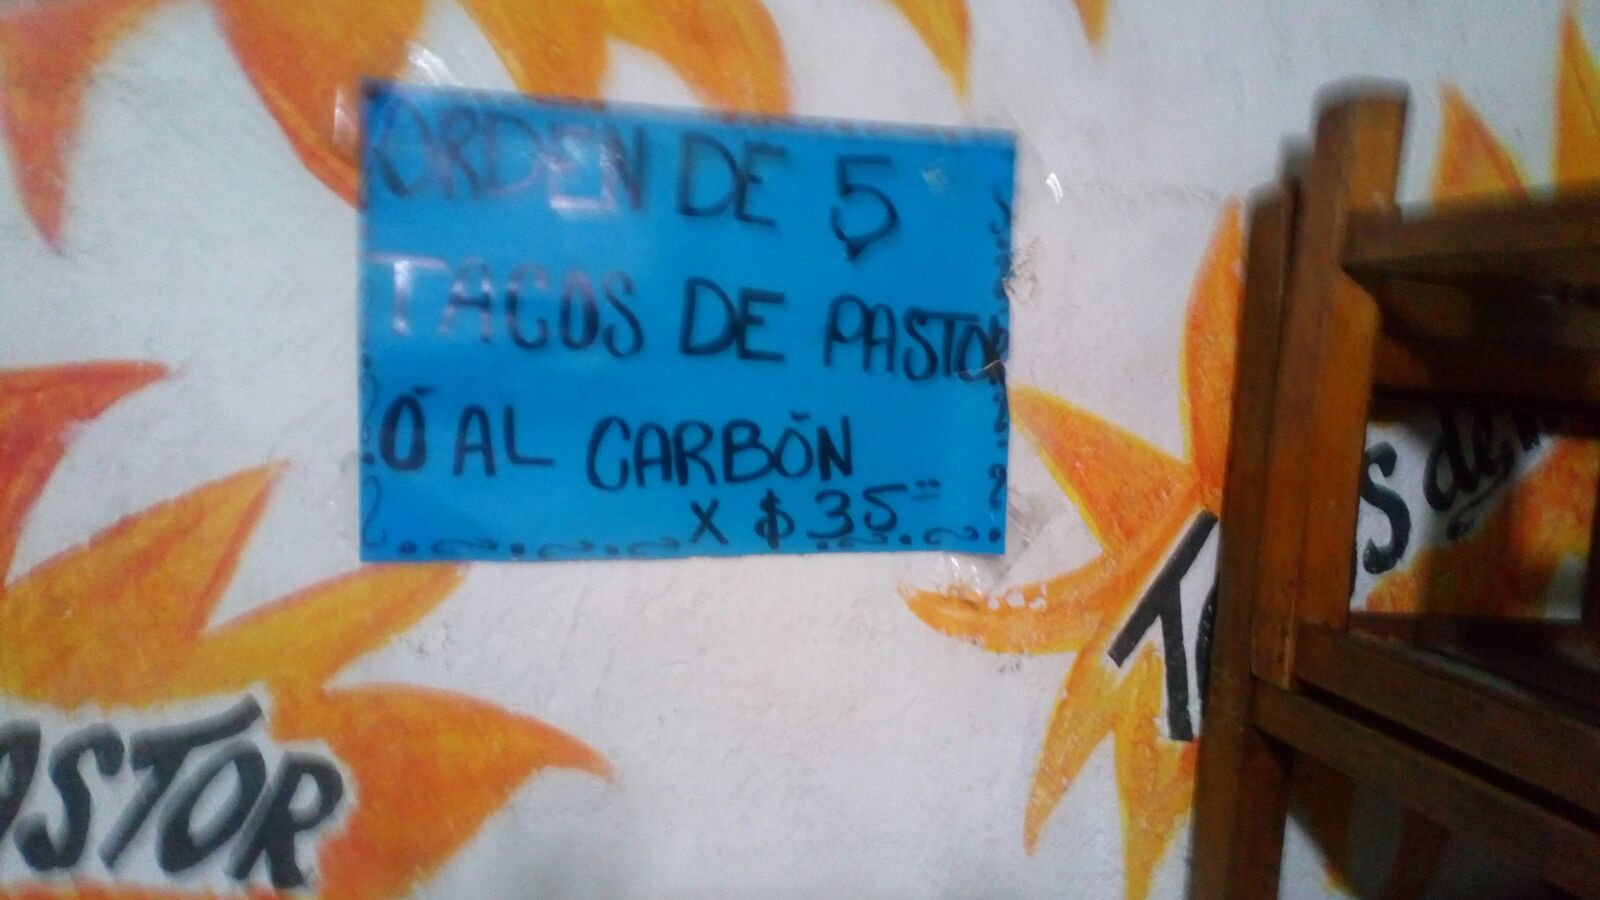 ORDEN DE 5
TACOS DE PASTOR
Ó AL CARBÓN
X $35
ASTOR
de